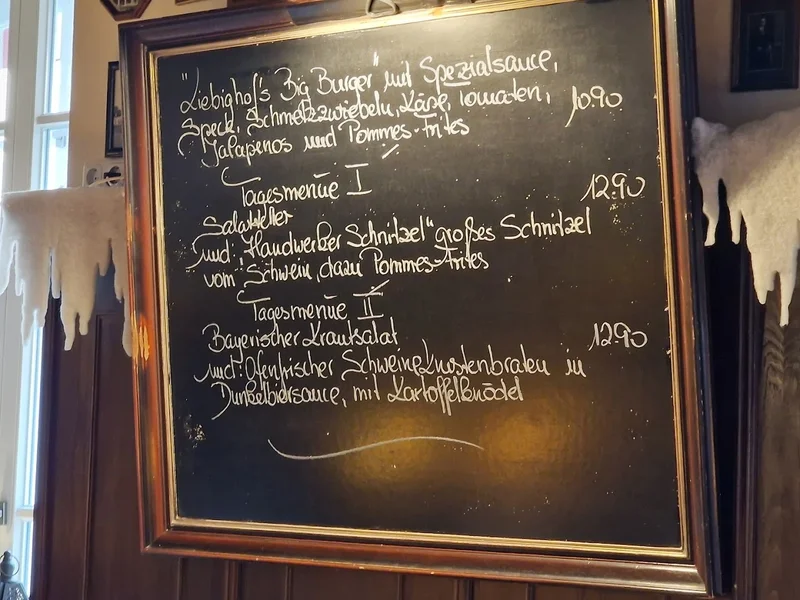 "Liebighof's Big Burger" mit Spezialsauce,
Speck, Schmelzzwiebeln, Käse, Tomaten, 10.90
Jalapenos und Pommes-Frites
Tagesmenüe I 12.90
Salatteller
und: „Handwerker Schnitzel" großes Schnitzel
vom Schwein, dazu Pommes-Frites
Tagesmenüe II
Bayerischer Krautsalat 12.90
und: Ofenfrischer Schweinekrustenbraten in
Dunkelbiersauce, mit Kartoffelknödel